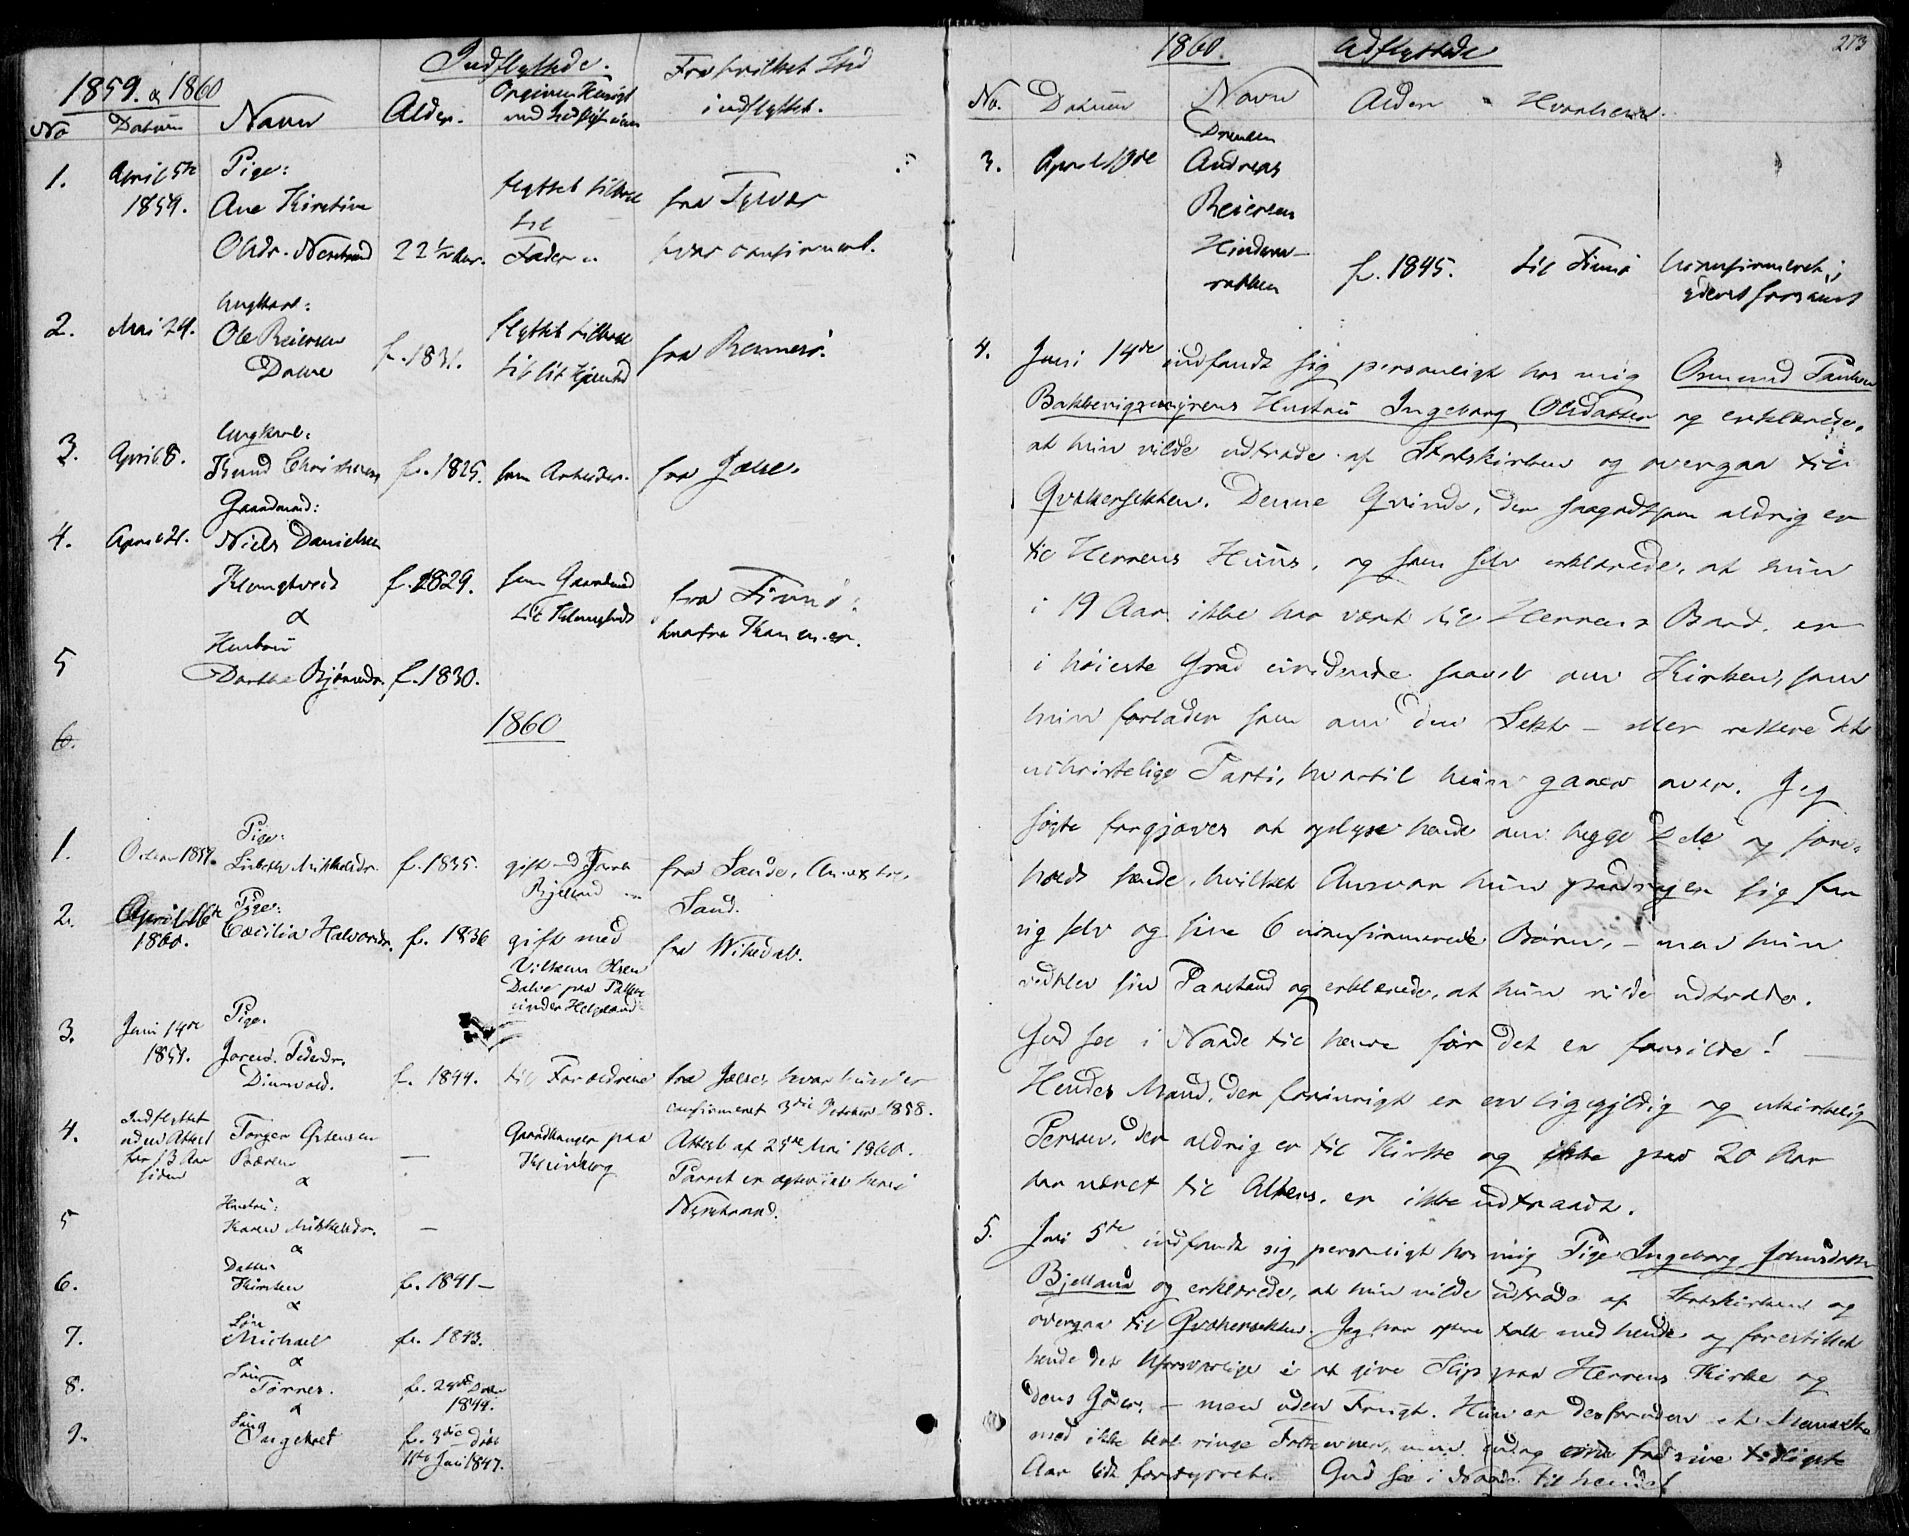 1859. & 1860
Indflyttede.
No Datum Navn Alder. Opgiven Hensigt Fra hvilket Sted
med Indflytningen indflyttet.
1. April 5te Pige:
1859. Ane Kirstine flyttet tilbage fra Tysvær
til
Olsdr. Nerstrand 22 1/2 Aar. Fader hvor confirmeret.
Ungkarl:
2. Mai 24. Ole Reiersen flyttet tilbage
Dalve f. 1831. til sit Hjemsted fra Rennesø.
Ungkarl:
3. April 8. Knud Christensen f. 1825. som Arbeider. fra Jælse.
Gaardmand:
4. April 21. Niels Danielsen
f. 1829. som Gaardmand fra Finnø:
& til
Hustru
5 Dorthe Bjørnsdr. f. 1830.
1860
6.
Pige:
1. 1859. Lisbeth Mikkelsdr. f. 1835. gift med fra Sande, Annex til
Bjelland Sand.
Pige:
2. April 16de Cæcilia Halvorsdr. f. 1836 gift med
1860. fra Wikedal.
Vilhelm Olsen
Dalve paa
under Helgeland
3. Juni 14de Pige.
1859. Pedersdr.
f. 1844. til Forældrene fra Jælse, hvor hun er
confirmeret 3die October 1858.
4. Indflyttet Torger Østensen Gaardbruger paa Attest af 25de Mai 1860.
uden Attest
for 13 Aar Bæren — Parret er ægteviet her i
siden & Nerstrand.
Hustru:
5 Karen Mikkelsdr. —
&
Datter
6. Kirsten f. 1841 —
&
Søn
7. Michael f. 1843.
&
Søn
8. Tørres. f. 29de
& 1844.
Søn
9. Ingebret f. 3die døbt
11te Juli 1847.
273
1860. Udflyttede
No. Datum Navn Alder Hvorhen.
Drengen
3. April 19de Andreas
Reiersen
f. 1845. til Finnø
4. Juni 14de indfandt sig personligt hos mig Osmund Paulsen
Bakkevigsmyrens Hustru Ingeborg Olsdatter og erklærede,
at hun vilde udtræde af Statskirken og overgaa til
Qvækersekten. Denne Qvinde, der saagodtsom aldrig er
til Herrens Huus, og som selv erklærede, at hun
i 19 Aar ikke har været til Herrens Bord, er
i høieste Grad uvidende saavel om Kirken, som
hun forlader som om den Sekt — eller rettere det
uchristelige Parti, hvortil hun gaaer over. Jeg
søgte forgjæves at oplyse hende om begge Dele og fore-
holdt hende, hvilket Ansvar hun paadrager sig for
sig selv og sine 6 uconfirmerede Børn, — men hun
vedblev sin Paastand og erklærede, at hun vilde udtræde.
Gud see i Naade til hende før det er forsilde! —
Hendes Mand, der forøvrigt er en ligegyldig og ukirkelig
Person, der aldrig er til Kirke og ikke paa 20 Aar
har været til Alters, er ikke udtraadt.
5. Juli 5te indfandt sig personligt hos mig Pige Ingeborg Johnsdatter
Bjelland og erklærede, at hun vilde udtræde af Statskirken og
overgaa til Qvækersekten. Jeg har ofte talt med hende og forestillet
hende det Uforsvarlige i at give Slip paa Herrens Kirke og
dens Goder, — men uden Frugt. Hun er desforuden et Menneske
med ikke blot ringe Evner, men endog fra sine tidligste
Aar lidt forstyrret. Gud see i Naade til hende!